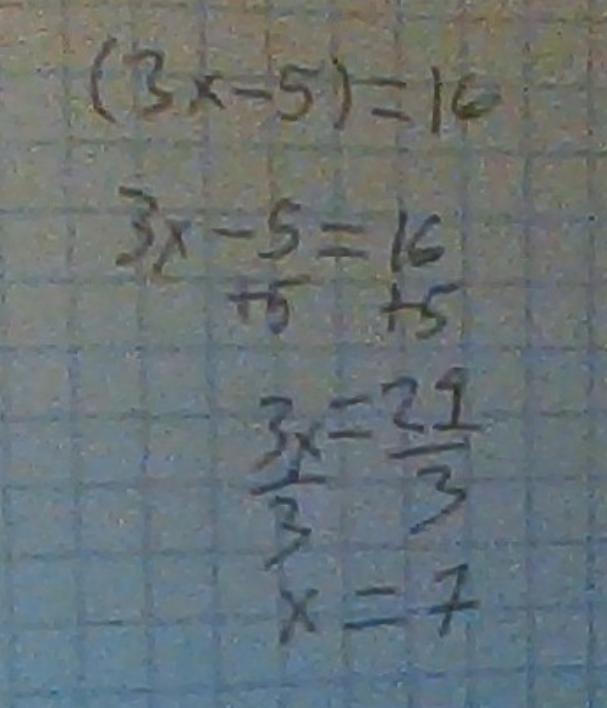 (3x-5)=16
3x-5=16
+5 +5
3x=21
3 3
x=7